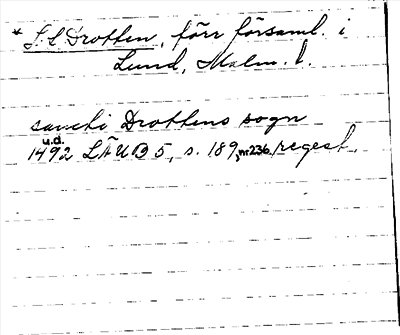 * S:t Drotten, förr församl. i
Lund, Malm. l.
sancti Drottens sogn
u.d.
1492 LÄUB 5, s. 189, nr 236, regest.